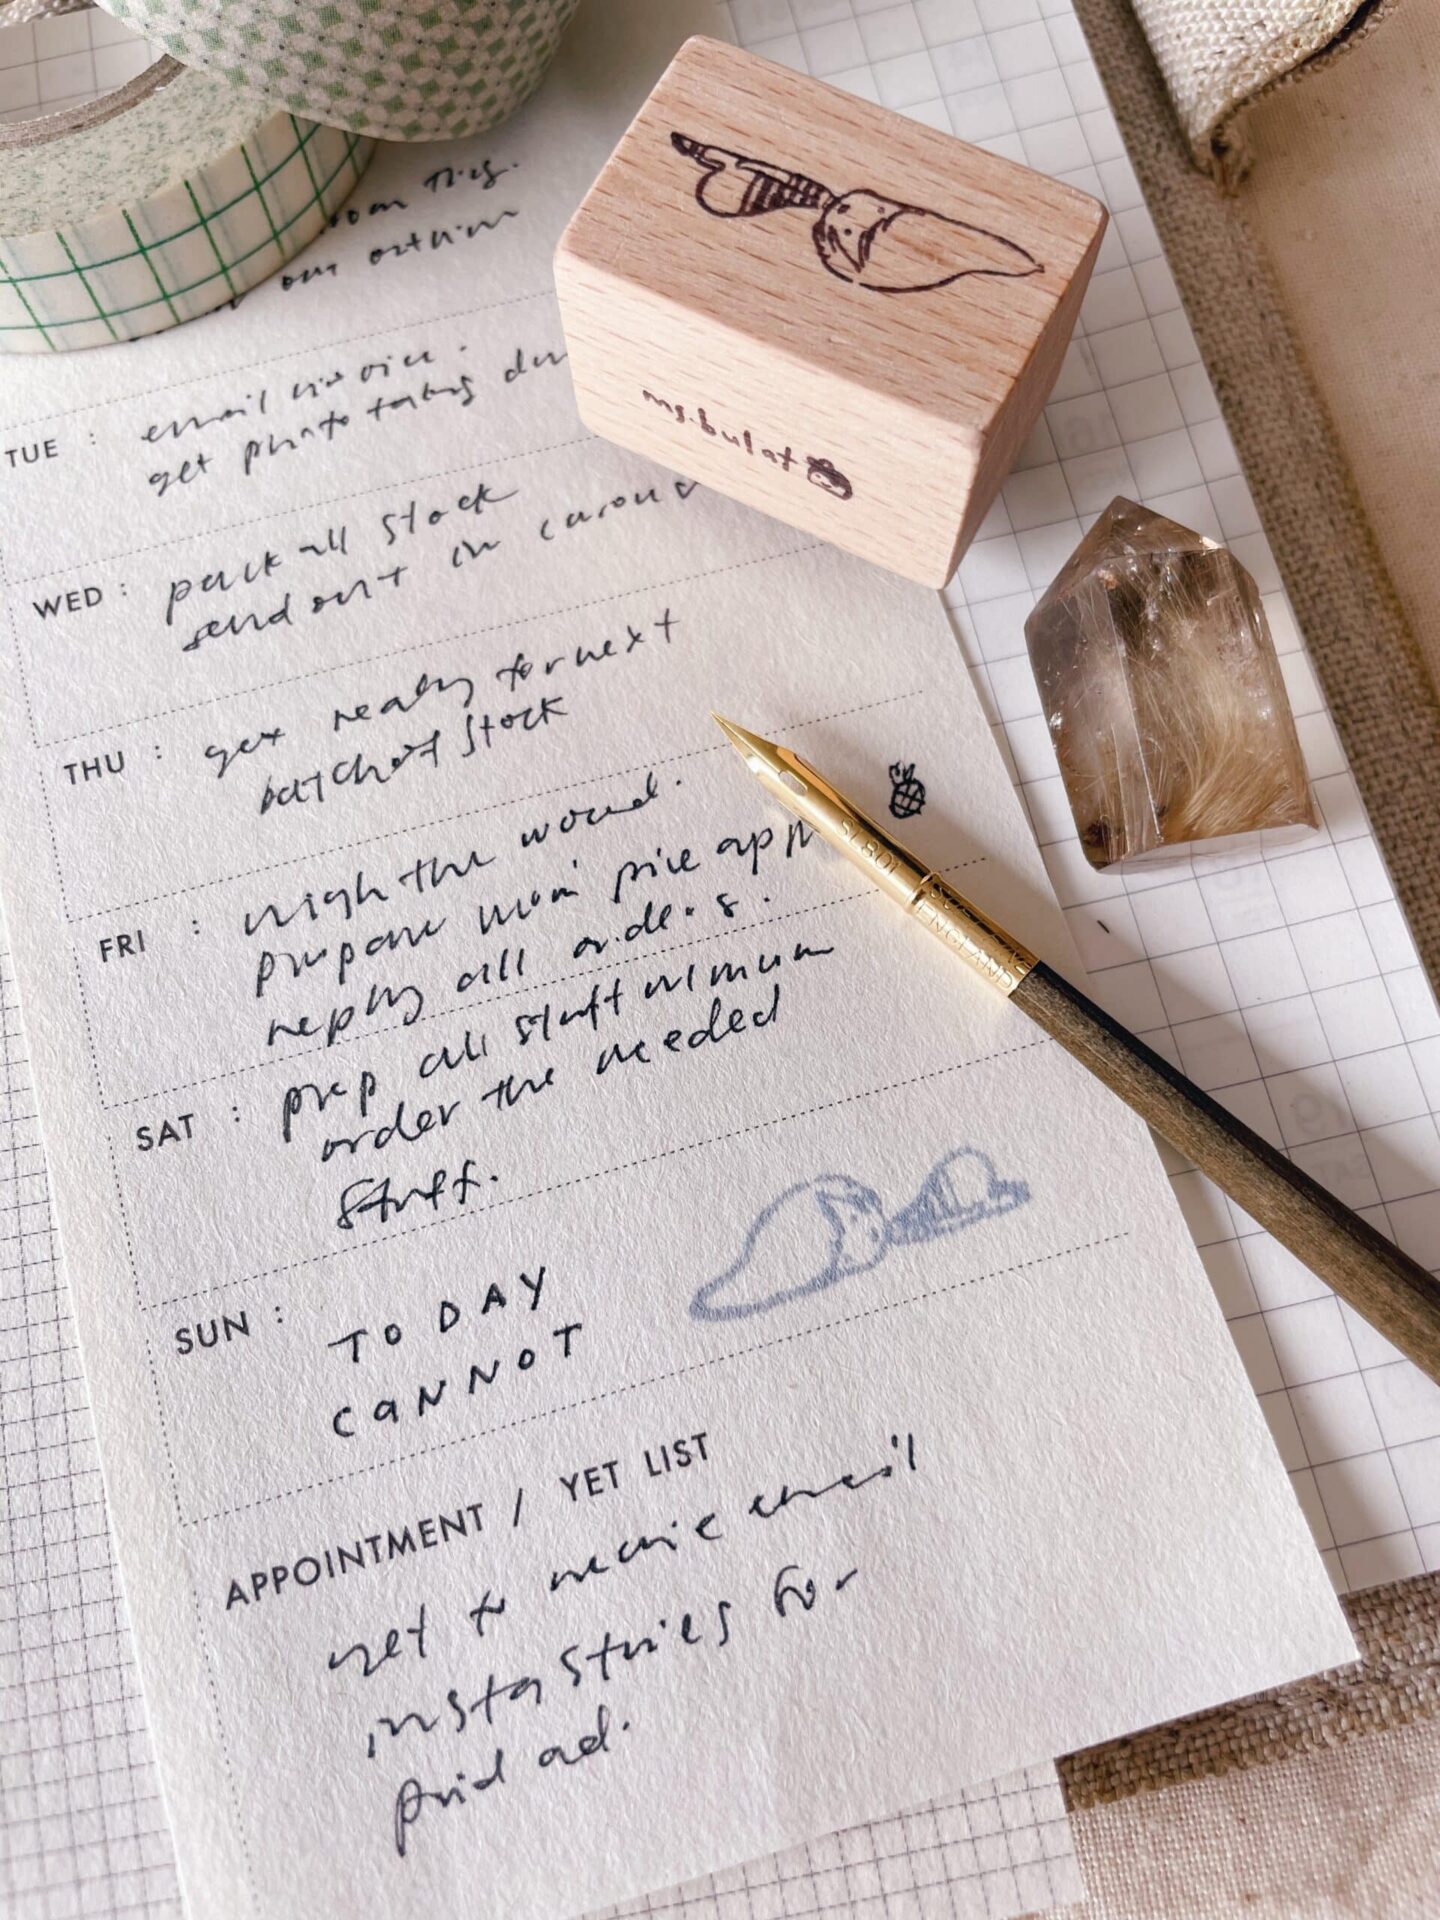 email invoice.
TUE : get photo taking
WED : pack all stock
send out in
THU : get ready for next
batch of stock
FRI : the wood.
prepare pine app
reply all orders.
SAT : prep all stuff minimum
order the needed
stuff.
SUN : TODAY
CANNOT
APPOINTMENT / YET LIST
yet to receive email
insta stories for
paid ad.
ms.bulat
SL801
ENGLAND